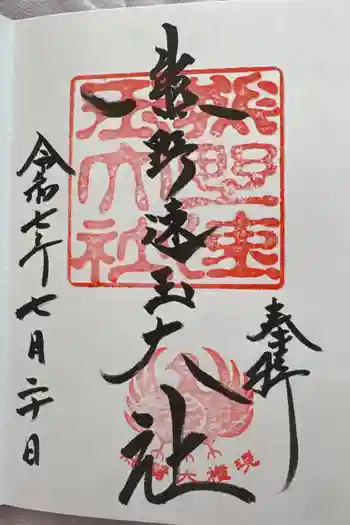 奉拝
熊野速玉大社
令和七年七月二十日
熊野速玉大社
熊野大権現